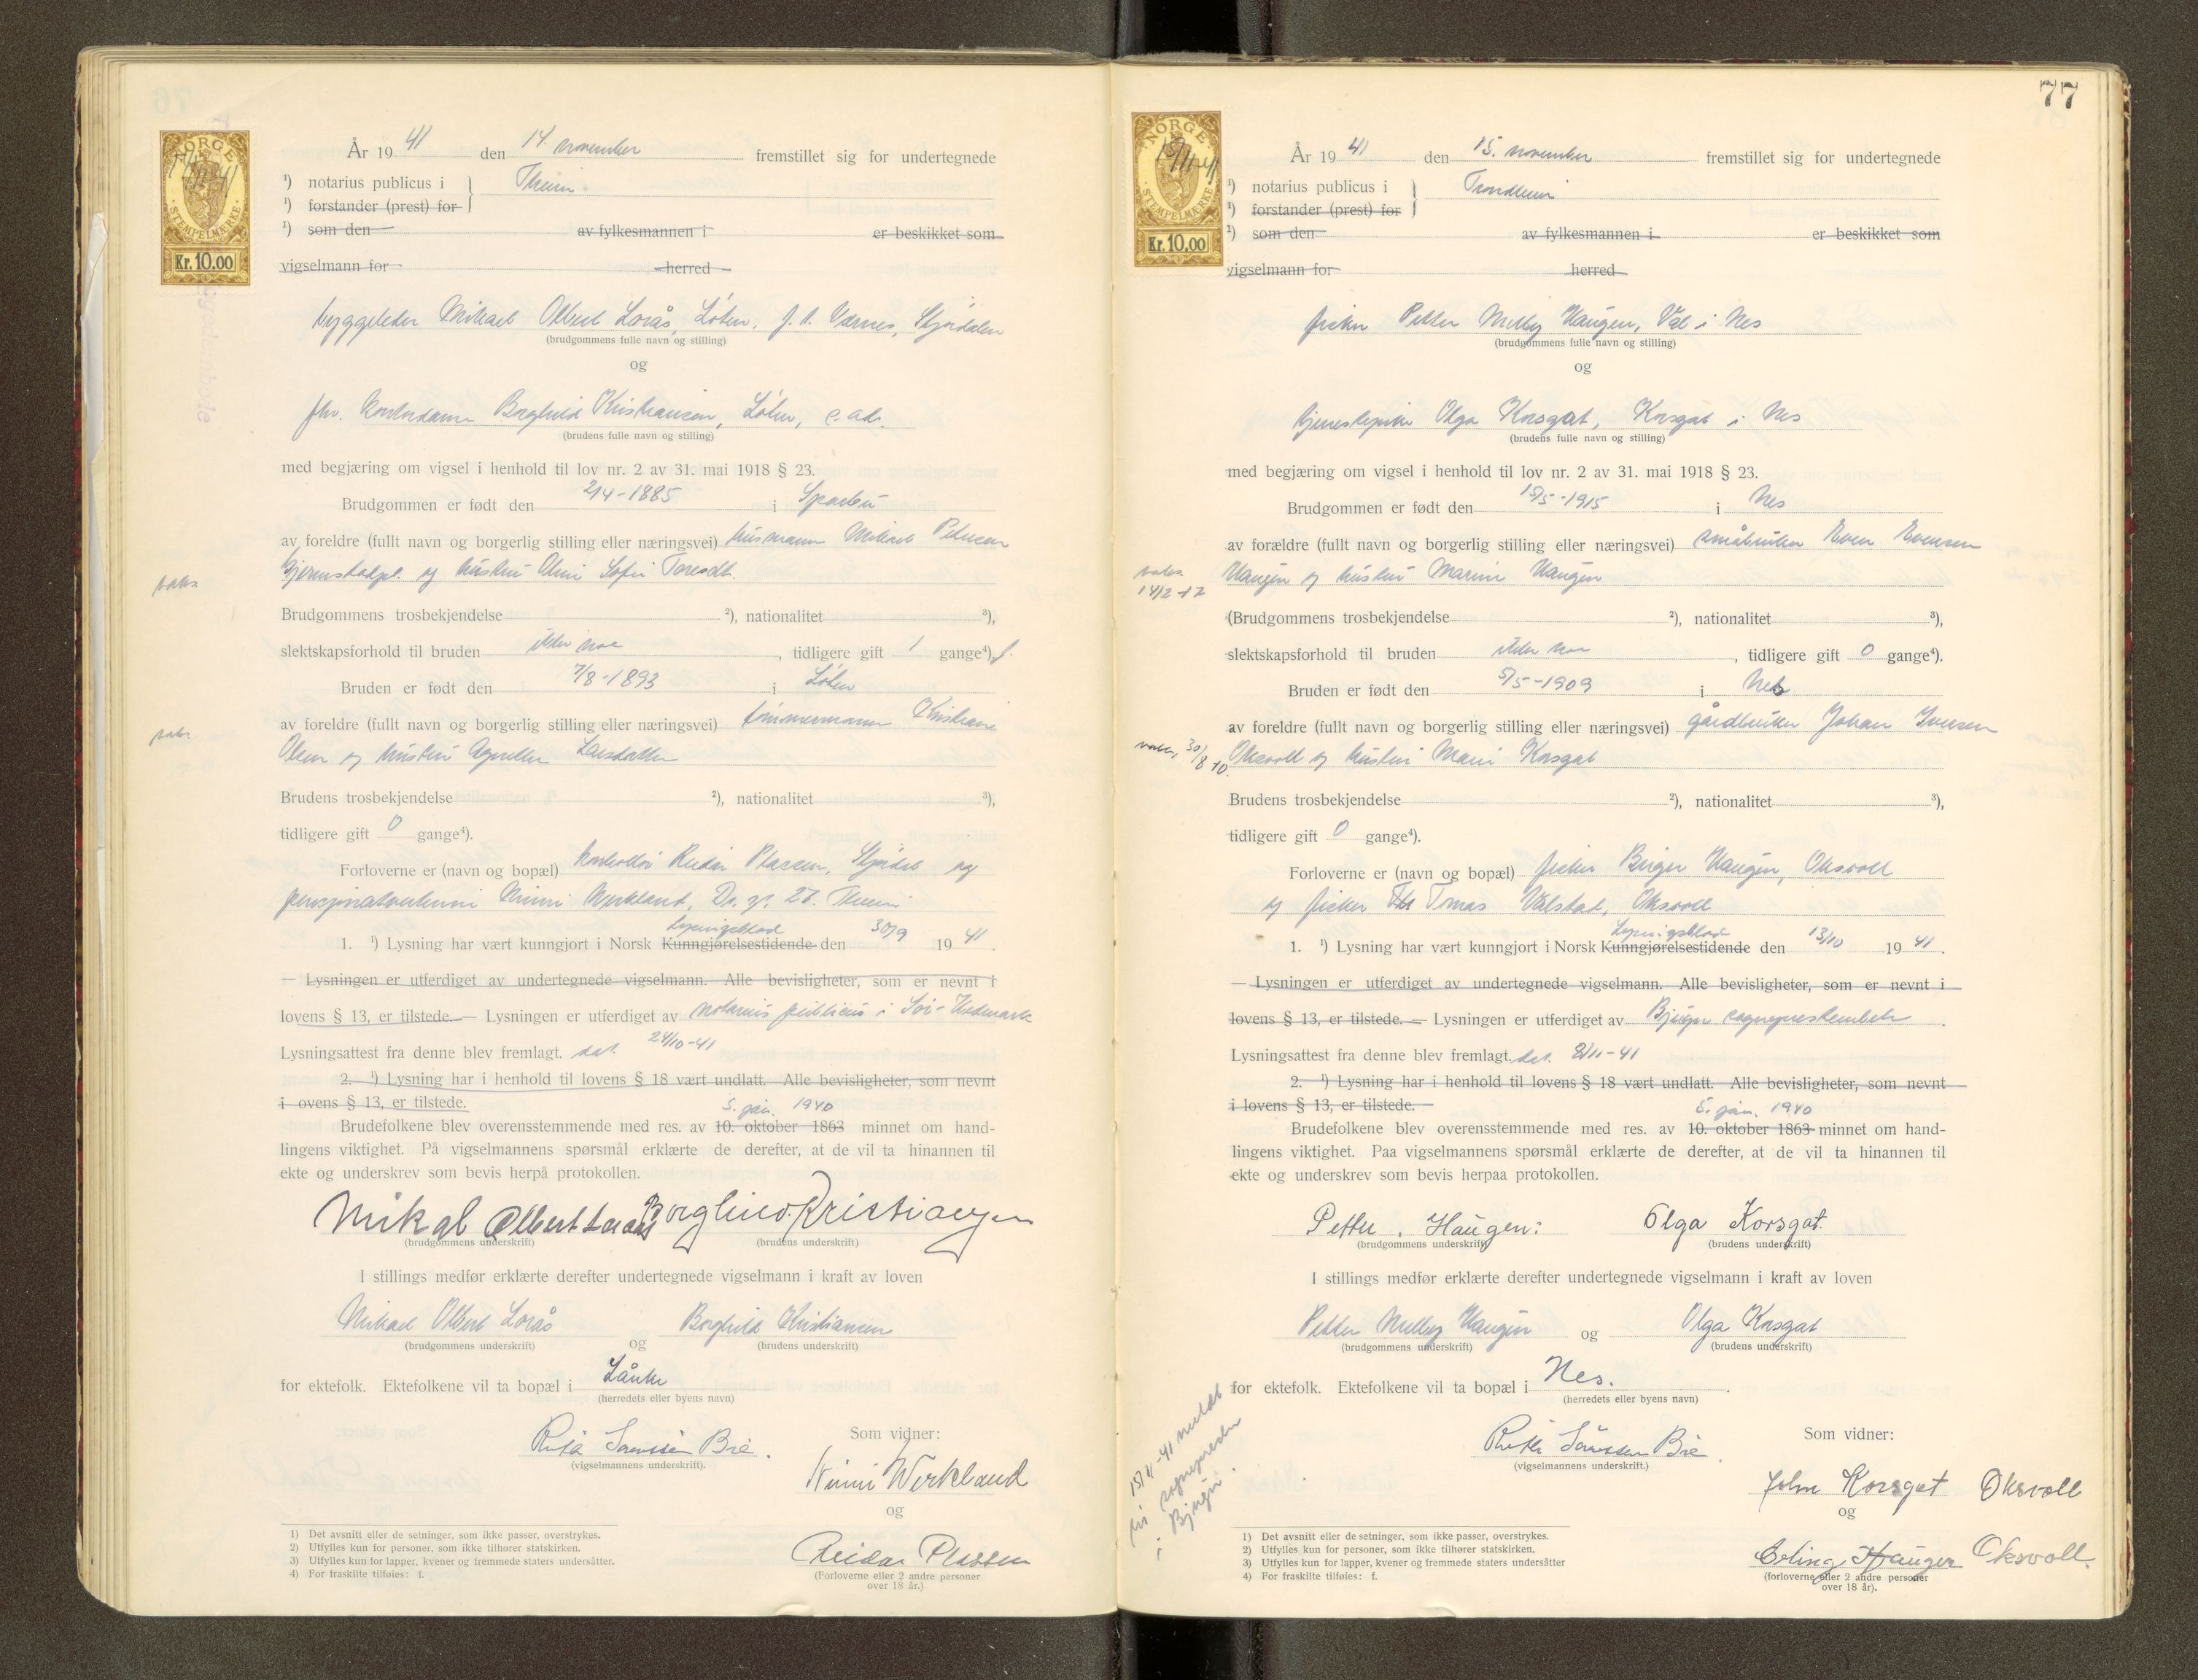 NORGE
14/11-41
STEMPELMERKE
Kr. 10.00
År 19 41 den 14. november fremstillet sig for undertegnede
¹) notarius publicus i Theim.
¹) forstander (prest) for
¹) som den av fylkesmannen i er beskikket som
vigselmann for herred
byggeleder Mikael Olbert Lorås, Løten, f. t. Værnes, Stjørdalen
(brudgommens fulle navn og stilling)
og
frk. Borghild Kristiansen, Løten, s. ad.
(brudens fulle navn og stilling)
med begjæring om vigsel i henhold til lov nr. 2 av 31. mai 1918 § 23.
Brudgommen er født den 2/4-1885 i Sparbu
av foreldre (fullt navn og borgerlig stilling eller næringsvei) husmann Mikael Petersen
og hustru Sofie
vaks.
Brudgommens trosbekjendelse ²), nationalitet ³),
slektskapsforhold til bruden ikke noe, tidligere gift 1 gange⁴) f.
Bruden er født den 7/8-1893 i Løten
av foreldre (fullt navn og borgerlig stilling eller næringsvei) tømmermann Kristian
vaks.
Olsen og hustru Larsdatter
Brudens trosbekjendelse ²), nationalitet ³),
tidligere gift 0 gange⁴).
Forloverne er (navn og bopæl) kontrollør Reidar Plassen, Stjørdal og
pensjonatvertinne Minni Werkland, Dr. g. 27. Theim
Lysingsblad
1. ¹) Lysning har vært kunngjort i Norsk Kunngjørelsestidende den 30/9 19 41.
— Lysningen er utferdiget av undertegnede vigselmann. Alle bevisligheter, som er nevnt i
lovens § 13, er tilstede. — Lysningen er utferdiget av notarius publicus i Sør-Hedmark
Lysningsattest fra denne blev fremlagt. dat. 24/10-41
2. ¹) Lysning har i henhold til lovens § 18 vært undlatt. Alle bevisligheter, som nevnt
i ovens § 13, er tilstede.
5. jan. 1940
Brudefolkene blev overensstemmende med res. av 10. oktober 1863 minnet om hand-
lingens viktighet. På vigselmannens spørsmål erklærte de derefter, at de vil ta hinannen til
ekte og underskrev som bevis herpå protokollen.
Mikal Olbert Loraas Borghild Kristiansen
(brudgommens underskrift) (brudens underskrift)
I stillings medfør erklærte derefter undertegnede vigselmann i kraft av loven
Mikael Olbert Lorås og Borghild Kristiansen
(brudgommens underskrift) (brudens underskrift)
for ektefolk. Ektefolkene vil ta bopæl i Lånke
(herredets eller byens navn)
Ruth Sørenssen Bie.
(vigselmannens underskrift).
Som vidner:
Minni Werkland
og
Reidar Plassen
(Forloverne eller 2 andre personer
over 18 år.)
1) Det avsnitt eller de setninger, som ikke passer, overstrykes.
2) Utfylles kun for personer, som ikke tilhører statskirken.
3) Utfylles kun for lapper, kvener og fremmede staters undersåtter.
4) For fraskilte tilføies: f.
77
NORGE
15/11-41
STEMPELMERKE
Kr. 10.00
År 19 41 den 15. november fremstillet sig for undertegnede
¹) notarius publicus i Trondheim
¹) forstander (prest) for
¹) som den av fylkesmannen i er beskikket som
vigselmann for herred
fisker Petter Melby Haugen, Val i Nes
(brudgommens fulle navn og stilling)
og
tjenestepike Olga Korsgat, Korsgat i Nes
(brudens fulle navn og stilling)
med begjæring om vigsel i henhold til lov nr. 2 av 31. mai 1918 § 23.
Brudgommen er født den 15/5-1915 i Nes
av forældre (fullt navn og borgerlig stilling eller næringsvei) småbruker Even Evensen
vaks. 14/2-17
Haugen og hustru Marie Haugen
(Brudgommens trosbekjendelse ²), nationalitet ³),
slektskapsforhold til bruden ikke noe, tidligere gift 0 gange⁴).
Bruden er født den 5/5-1909 i Nes
av foreldre (fullt navn og borgerlig stilling eller næringsvei) gårdbruker Johan Iversen
vaks, 30/8 10.
Oksvoll og hustru Marie Korsgat
Brudens trosbekjendelse ²), nationalitet ³),
tidligere gift 0 gange⁴).
Forloverne er (navn og bopæl) fisker Birger Haugen, Oksvoll
og fisker Tomas Valstad, Oksvoll
Lysingsblad
1. ¹) Lysning har vært kunngjort i Norsk Kunngjørelsestidende den 13/10 19 41.
— Lysningen er utferdiget av undertegnede vigselmann. Alle bevisligheter, som er nevnt i
lovens § 13, er tilstede. — Lysningen er utferdiget av Bjugn sogneprestembete.
Lysningsattest fra denne blev fremlagt. dat. 8/11-41
2. ¹) Lysning har i henhold til lovens § 18 vært undlatt. Alle bevisligheter, som nevnt
i lovens § 13, er tilstede. —
5. jan. 1940
Brudefolkene blev overensstemmende med res. av 10. oktober 1863 minnet om hand-
lingens viktighet. Paa vigselmannens spørsmål erklærte de derefter, at de vil ta hinannen til
ekte og underskrev som bevis herpaa protokollen.
Petter. Haugen: Olga Korsgat.
(brudgommens underskrift) (brudens underskrift)
I stillings medfør erklærte derefter undertegnede vigselmann i kraft av loven
Petter Melby Haugen og Olga Korsgat
(brudgommens underskrift) (brudens underskrift)
for ektefolk. Ektefolkene vil ta bopæl i Nes.
(herredets eller byens navn)
15/11-41 meldt
til sognepresten
i Bjugn.
Ruth Sørenssen Bie
(vigselmannens underskrift.)
Som vidner:
John Korsgat Oksvoll
og
Erling Haugen Oksvoll.
(forloverne eller 2 andre personer
over 18 år).
1) Det avsnitt eller de setninger, som ikke passer, overstrykes.
2) Utfylles kun for personer, som ikke tilhører statskirken.
3) Utfylles kun for lapper, kvener og fremmede staters undersåtter
4) For fraskilte tilføies: f.